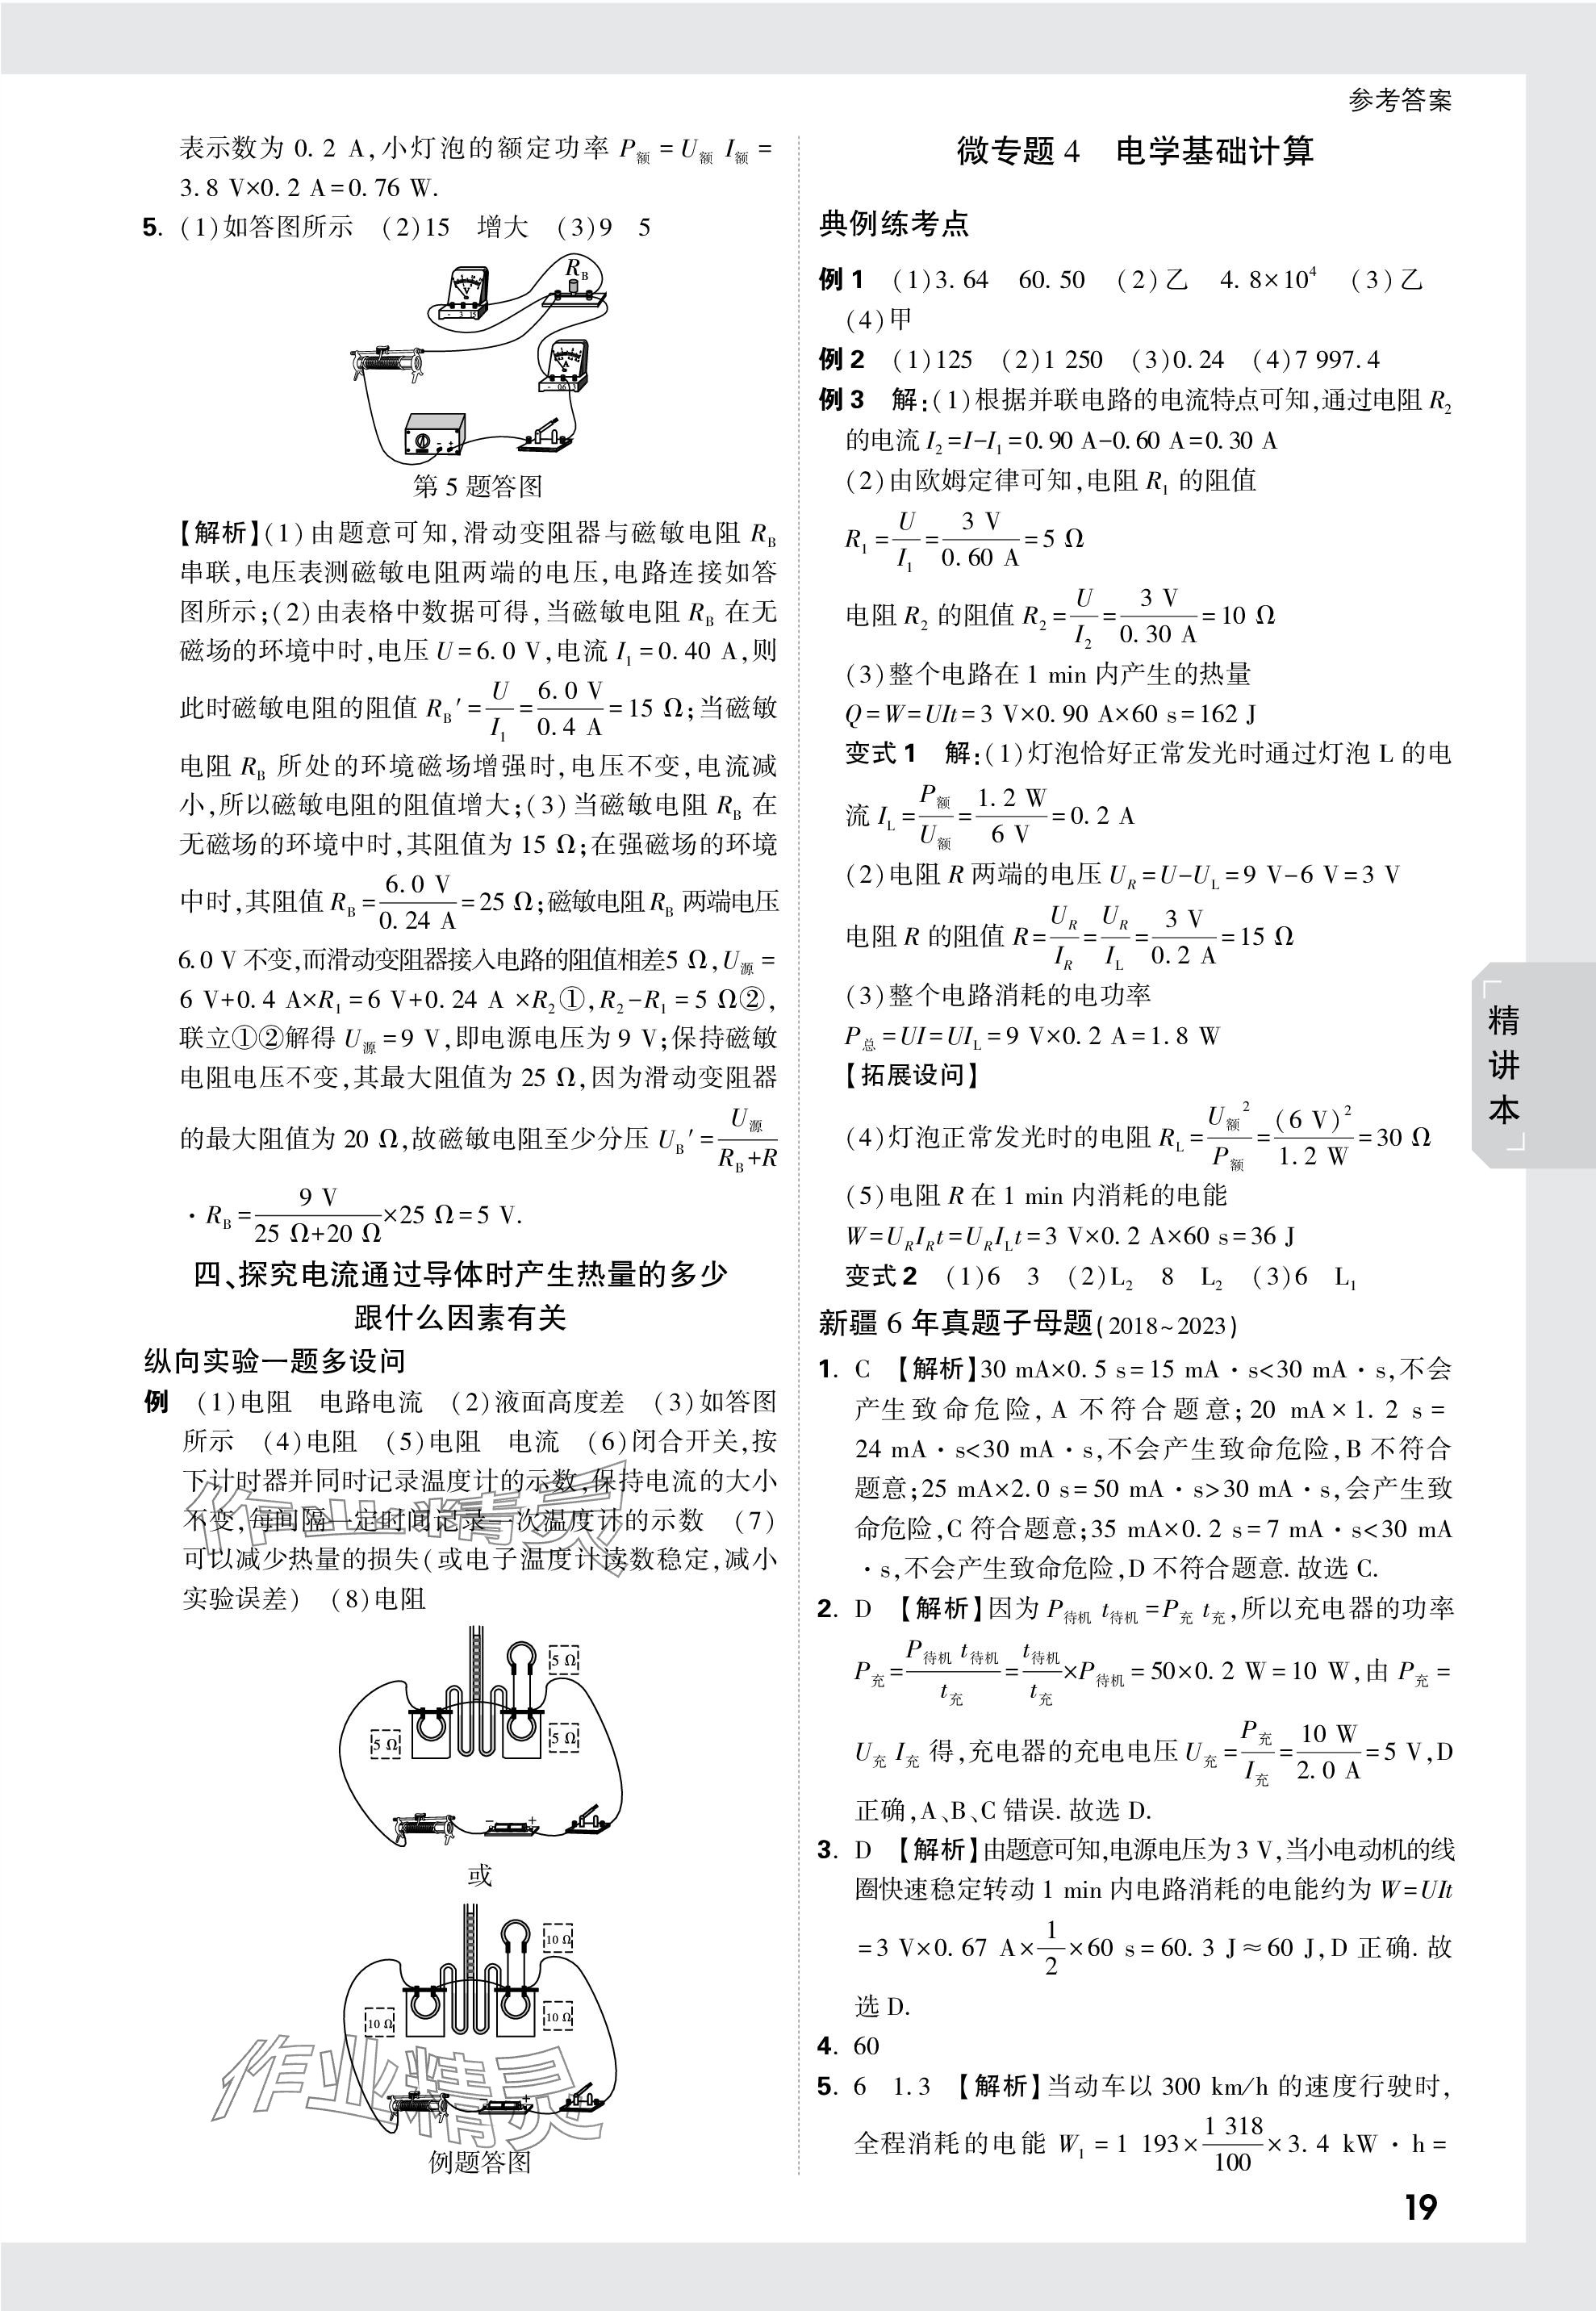 参考答案
表示数为 0. 2 A,小灯泡的额定功率 P额 = U额 I额 =
3. 8 V×0. 2 A=0. 76 W.
5. (1)如答图所示 (2)15 增大 (3)9 5
RB
V
- 3 15
A
- 0.6 3
- +
第 5 题答图
【解析】(1)由题意可知,滑动变阻器与磁敏电阻 RB
串联,电压表测磁敏电阻两端的电压,电路连接如答
图所示;(2)由表格中数据可得,当磁敏电阻 RB 在无
磁场的环境中时,电压 U=6. 0 V,电流 I1 =0. 40 A,则
此时磁敏电阻的阻值 RB′=U/I1=6. 0 V/0. 4 A=15 Ω;当磁敏
电阻 RB 所处的环境磁场增强时,电压不变,电流减
小,所以磁敏电阻的阻值增大;(3)当磁敏电阻 RB 在
无磁场的环境中时,其阻值为 15 Ω;在强磁场的环境
中时,其阻值 RB=6. 0 V/0. 24 A=25 Ω;磁敏电阻 RB 两端电压
6.0 V 不变,而滑动变阻器接入电路的阻值相差5 Ω,U源 =
6 V+0. 4 A×R1 =6 V+0. 24 A ×R2①,R2-R1 =5 Ω②,
联立①②解得 U源 =9 V,即电源电压为 9 V;保持磁敏
电阻电压不变,其最大阻值为 25 Ω,因为滑动变阻器
的最大阻值为 20 Ω,故磁敏电阻至少分压 UB′=U源/(RB+R)
· RB=9 V/(25 Ω+20 Ω)×25 Ω=5 V.
四、探究电流通过导体时产生热量的多少
跟什么因素有关
纵向实验一题多设问
例 (1)电阻 电路电流 (2)液面高度差 (3)如答图
所示 (4)电阻 (5)电阻 电流 (6)闭合开关,按
下计时器并同时记录温度计的示数,保持电流的大小
不变,每间隔一定时间记录一次温度计的示数 (7)
可以减少热量的损失(或电子温度计读数稳定,减小
实验误差) (8)电阻
作业精灵
5 Ω
5 Ω
5 Ω
- +
或
10 Ω
10 Ω
10 Ω
- +
作业精灵
例题答图
微专题 4 电学基础计算
典例练考点
例 1 (1)3. 64 60. 50 (2)乙 4. 8×10⁴ (3)乙
(4)甲
例 2 (1)125 (2)1 250 (3)0. 24 (4)7 997. 4
例 3 解:(1)根据并联电路的电流特点可知,通过电阻 R2
的电流 I2=I-I1=0. 90 A-0. 60 A=0. 30 A
(2)由欧姆定律可知,电阻 R1 的阻值
R1=U/I1=3 V/0. 60 A=5 Ω
电阻 R2 的阻值 R2=U/I2=3 V/0. 30 A=10 Ω
(3)整个电路在 1 min 内产生的热量
Q=W=UIt=3 V×0. 90 A×60 s=162 J
变式 1 解:(1)灯泡恰好正常发光时通过灯泡 L 的电
流 IL=P额/U额=1. 2 W/6 V=0. 2 A
(2)电阻 R 两端的电压 UR=U-UL=9 V-6 V=3 V
电阻 R 的阻值 R=UR/IR=UR/IL=3 V/0. 2 A=15 Ω
(3)整个电路消耗的电功率
P总 =UI=UIL=9 V×0. 2 A=1. 8 W
【拓展设问】
(4)灯泡正常发光时的电阻 RL=U额²/P额=(6 V)²/1. 2 W=30 Ω
(5)电阻 R 在 1 min 内消耗的电能
W=URIRt=URILt=3 V×0. 2 A×60 s=36 J
变式 2 (1)6 3 (2)L2 8 L2 (3)6 L1
新疆 6 年真题子母题(2018~2023)
1. C 【解析】30 mA×0. 5 s=15 mA · s<30 mA · s,不会
产生致命危险,A 不符合题意;20 mA×1. 2 s=
24 mA · s<30 mA · s,不会产生致命危险,B 不符合
题意;25 mA×2.0 s=50 mA · s>30 mA · s,会产生致
命危险,C 符合题意;35 mA×0. 2 s=7 mA · s<30 mA
· s,不会产生致命危险,D 不符合题意. 故选 C.
2. D 【解析】因为 P待机 t待机 =P充 t充,所以充电器的功率
P充=P待机 t待机/t充=t待机/t充×P待机 =50×0. 2 W=10 W,由 P充 =
U充 I充 得,充电器的充电电压 U充=P充/I充=10 W/2. 0 A=5 V,D
正确,A、B、C 错误. 故选 D.
3. D 【解析】由题意可知,电源电压为 3 V,当小电动机的线
圈快速稳定转动 1 min 内电路消耗的电能约为 W=UIt
=3 V×0. 67 A×1/2×60 s=60. 3 J≈60 J,D 正确. 故
选 D.
4. 60
5. 6 1. 3 【解析】当动车以 300 km/h 的速度行驶时,
全程消耗的电能 W1 =1 193×1 318/100×3. 4 kW · h=
精讲本
19